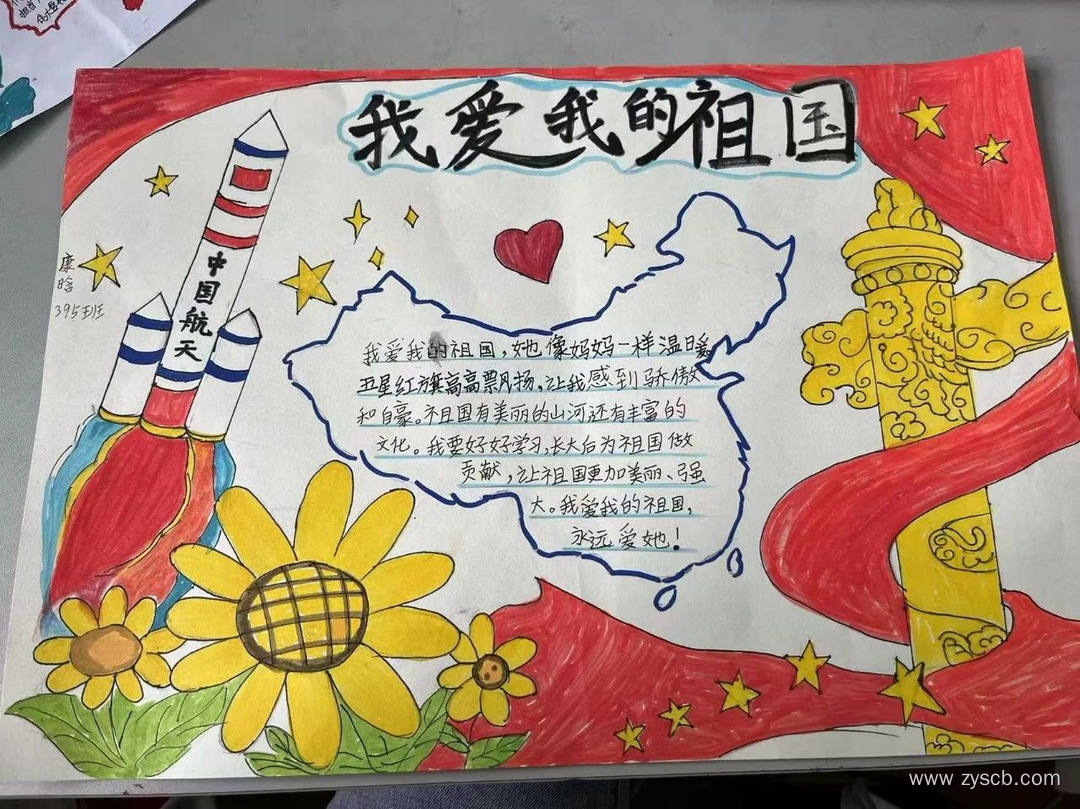 我爱我的祖国
中国航天
康晗
395班
我爱我的祖国，她像妈妈一样温暖
五星红旗高高飘扬，让我感到骄傲
和自豪。祖国有美丽的山河还有丰富的
文化。我要好好学习，长大后为祖国做
贡献，让祖国更加美丽、强
大。我爱我的祖国，
永远爱她！
www.zyscb.com